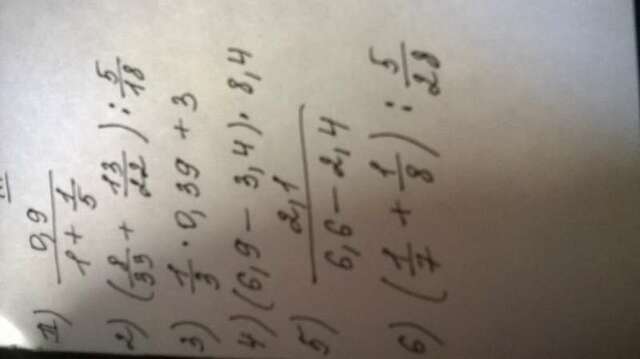 1) 0,9 / (1 + 1/5)
2) (8/33 + 13/22) : 5/18
3) 1/3 · 0,39 + 3
4) (6,9 - 3,4) · 8,4
5) 2,1 / (6,6 - 2,4)
6) (1/7 + 1/8) : 5/28